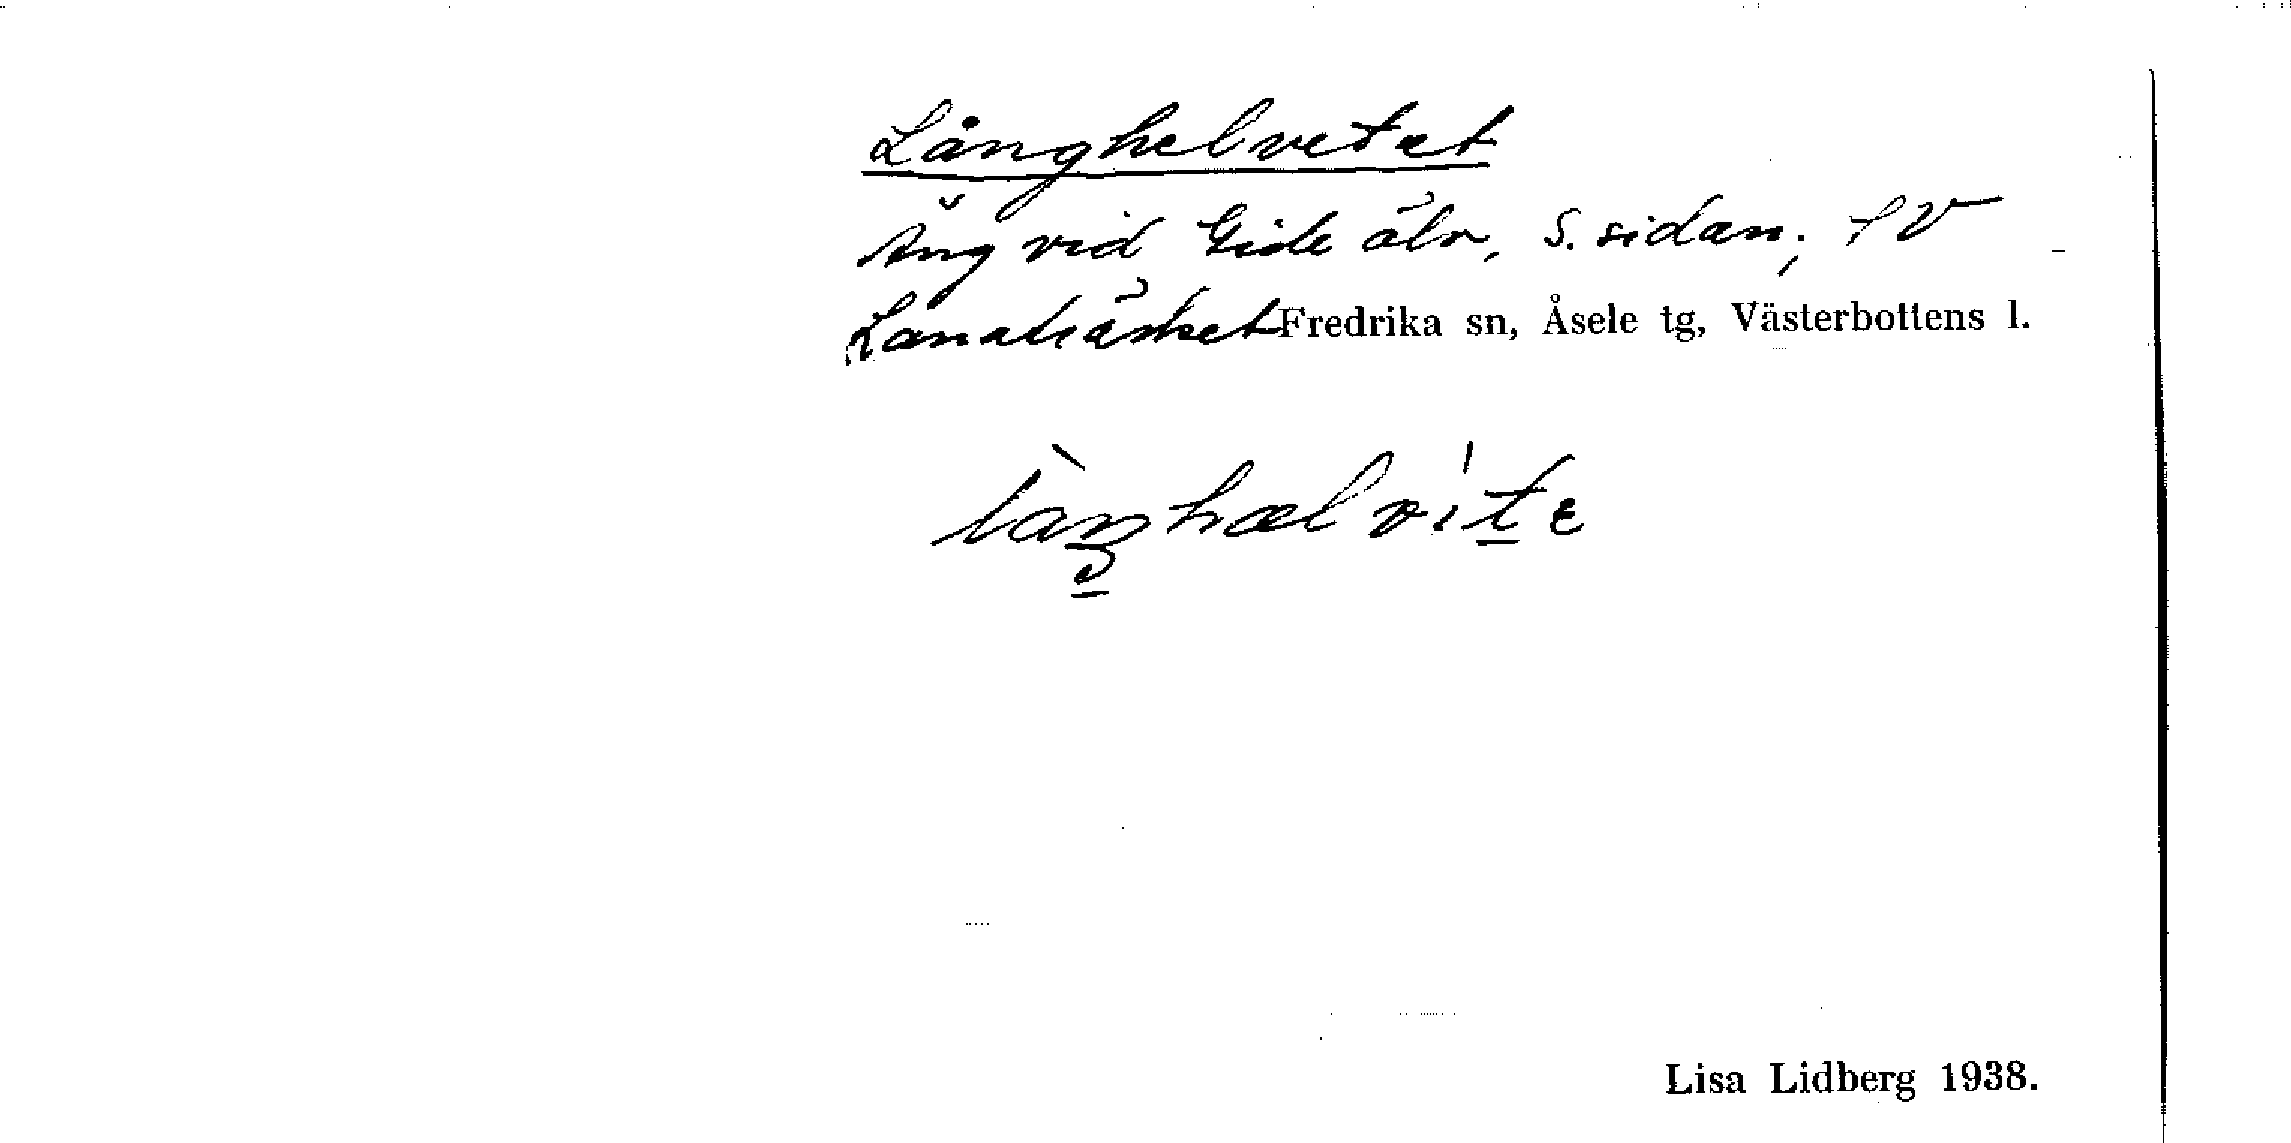 Långhelvetet
Äng vid Gide älv, S. sidan, f V
Lanaträsket Fredrika sn, Åsele tg, Västerbottens l.
Lisa Lidberg 1938.